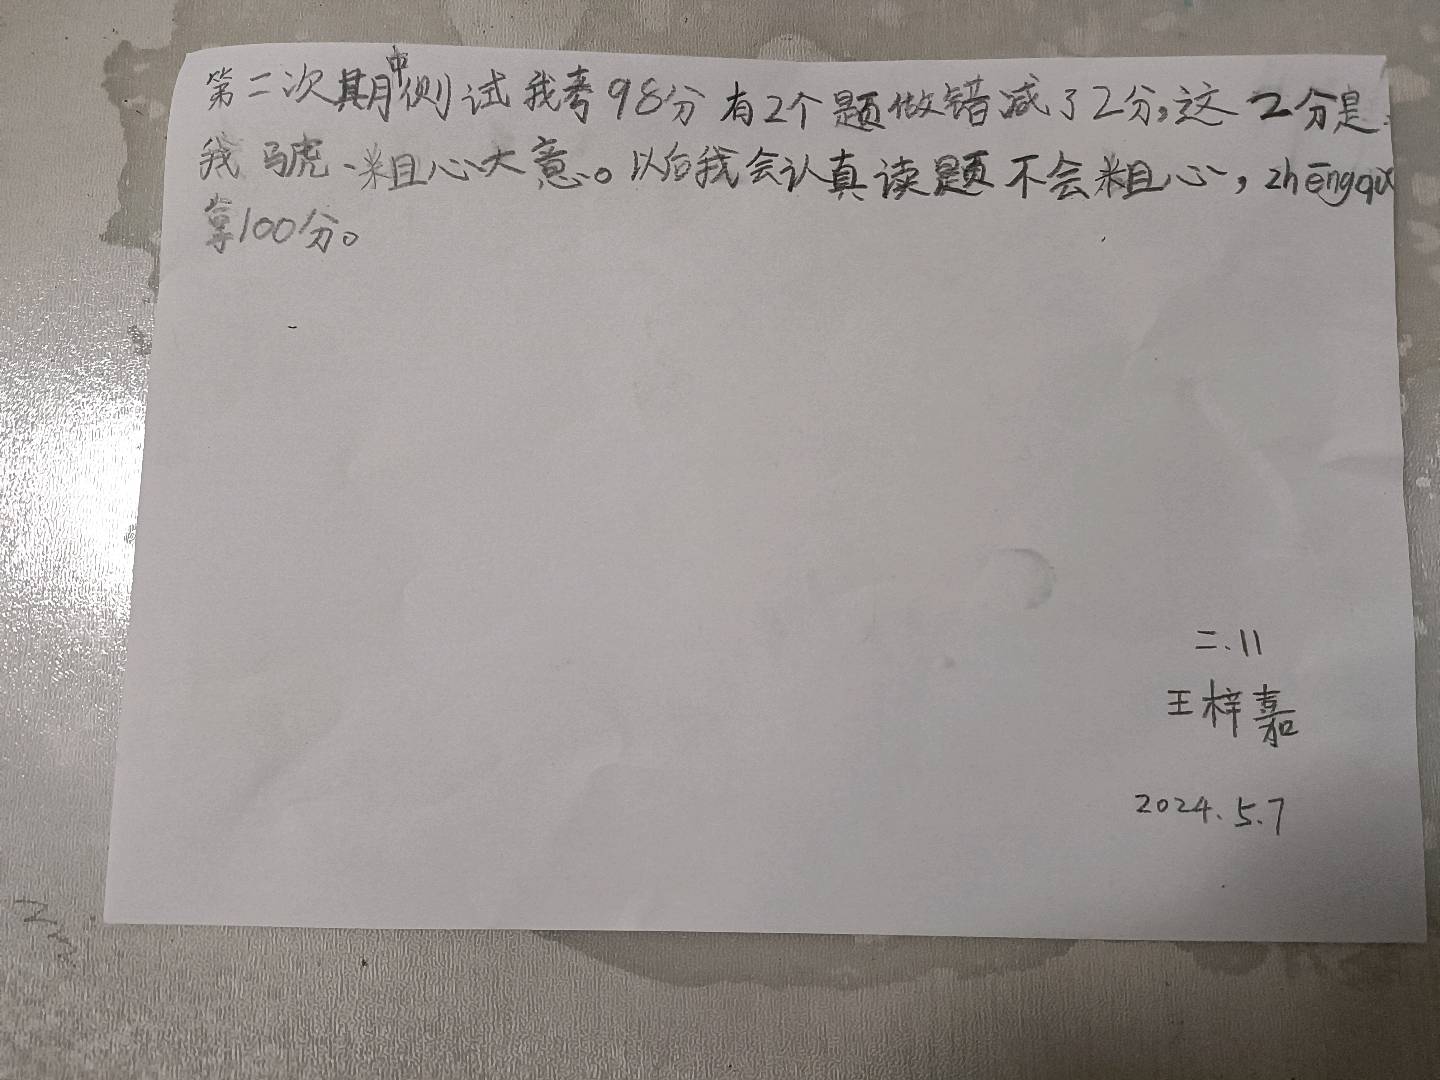 第二次期中侧试我考98分有2个题做错减了2分,这2分是
我马虎、粗心大意。以后我会认真读题不会粗心,zhēngqǔ
拿100分。
二.11
王梓嘉
2024.5.7